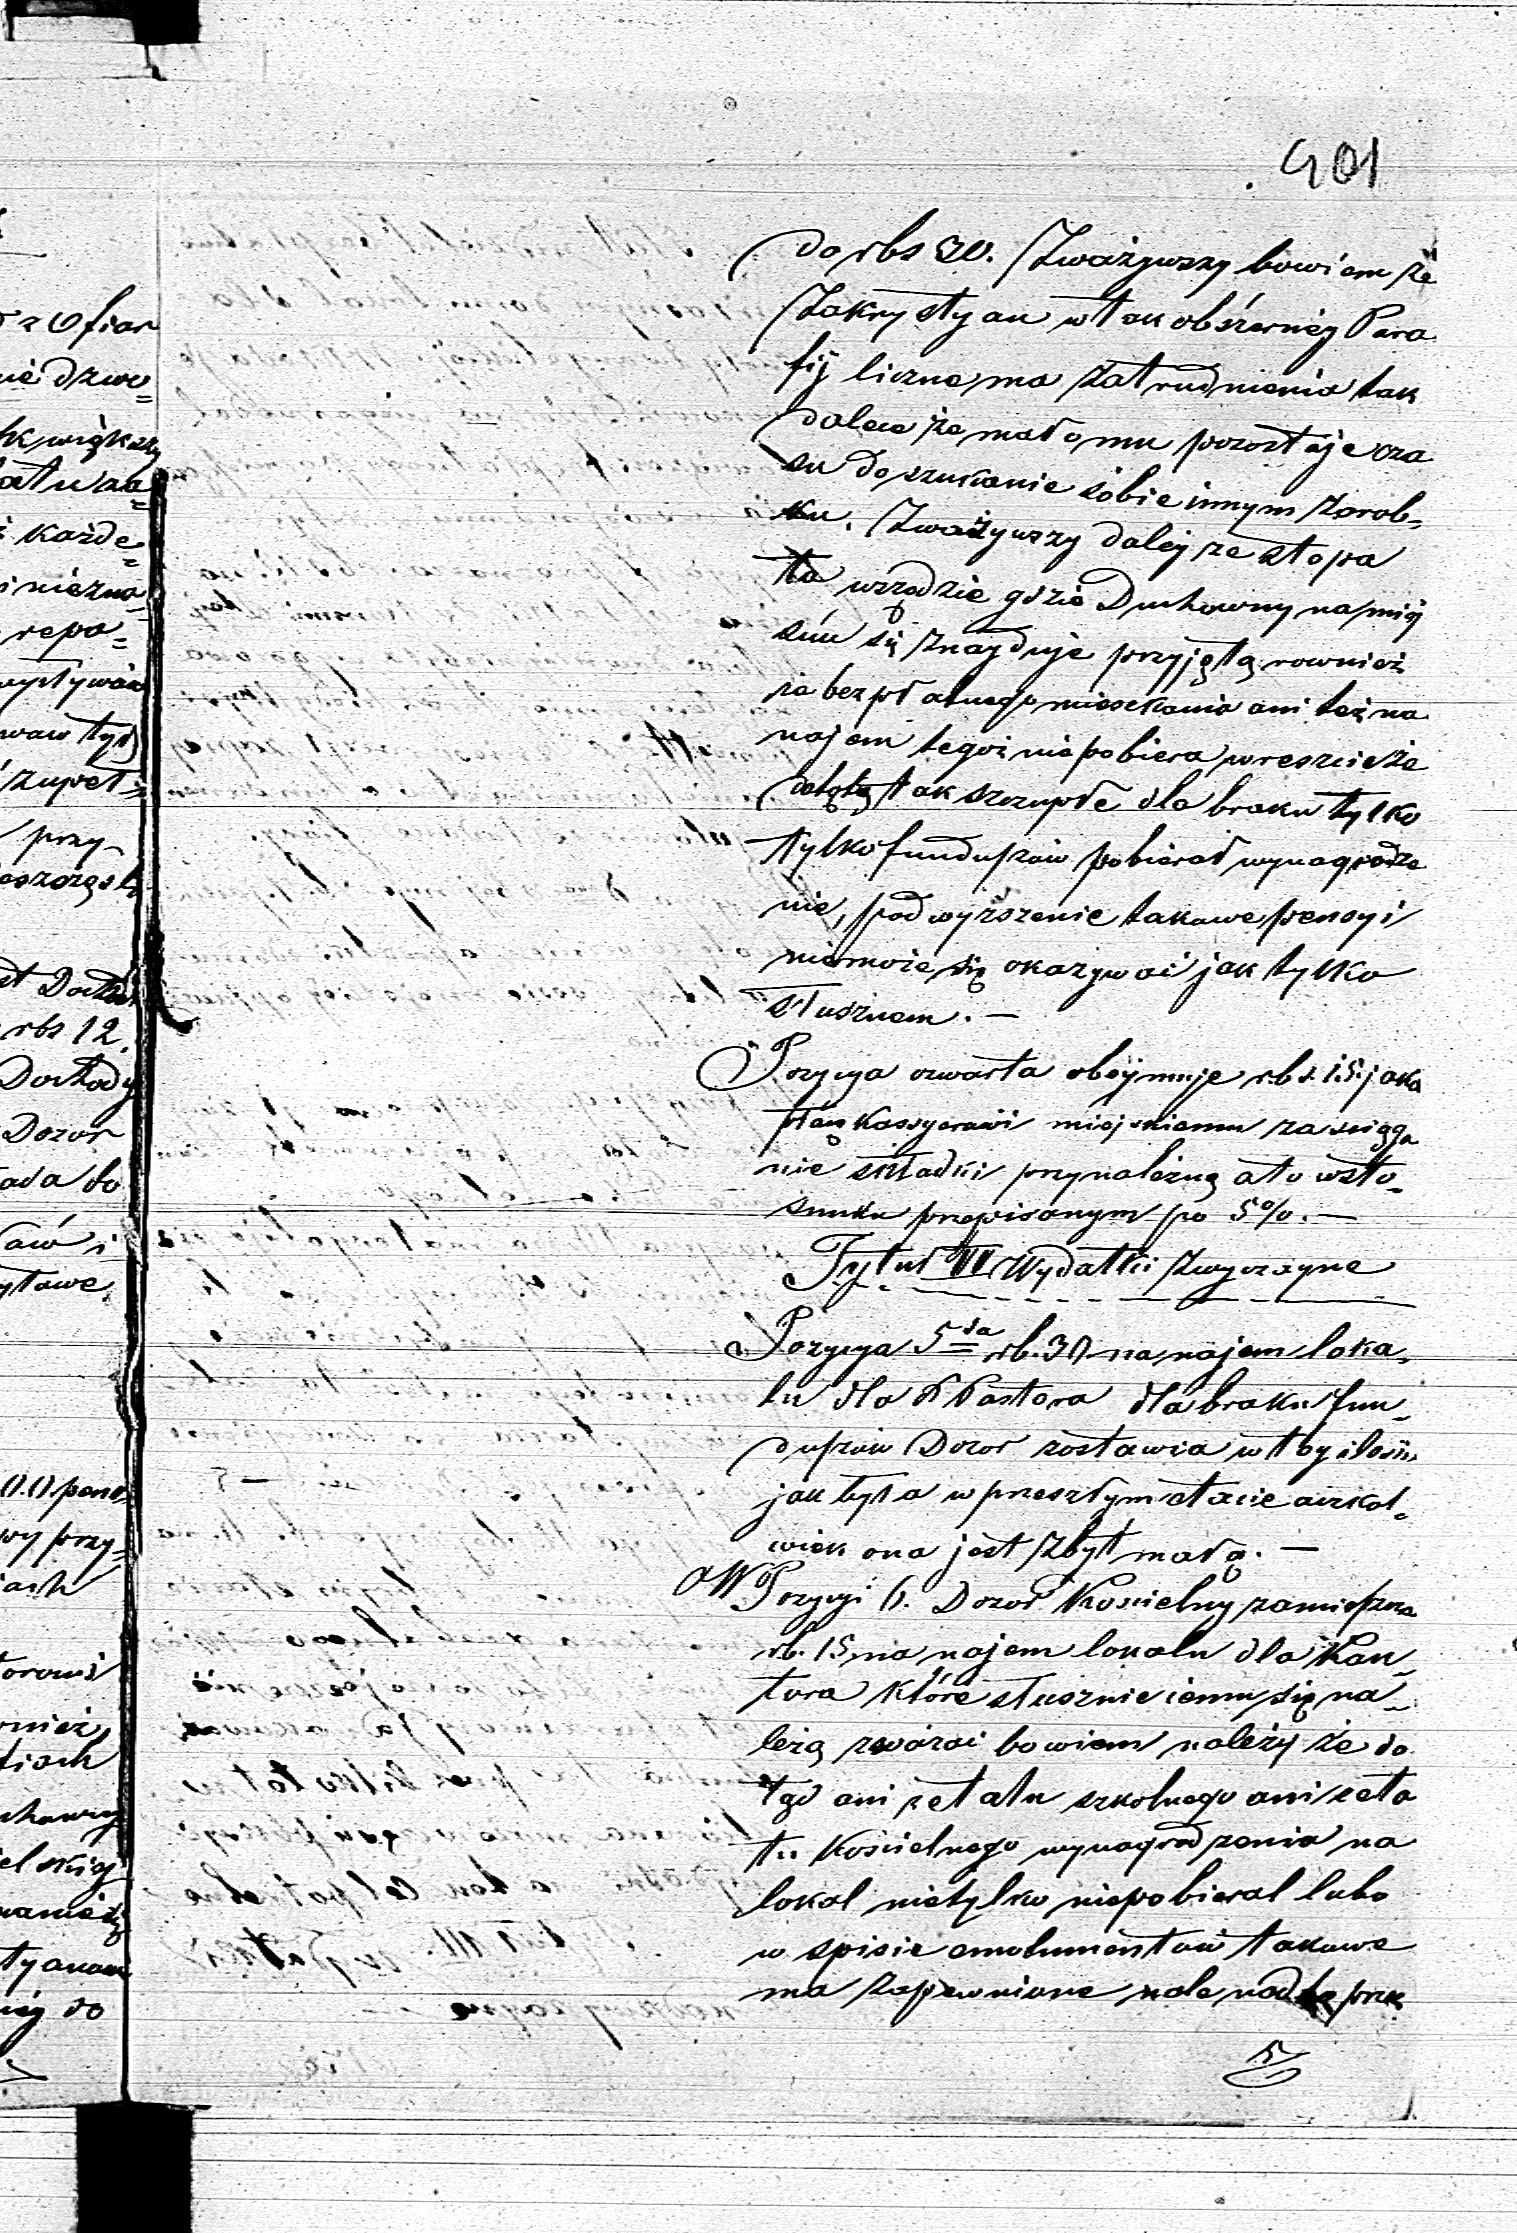 401
do rbs 30. Zważywszy bowiem że
Zakrystyan w tak obszernéy Para
fij liczne ma zatrudnienia tak
dalece że mało mu pozostaje cza
su do szukanie sobie innym zarob=
ku. Zważywszy daléj że stopa
ta wszędzie gdzie Duchowny na miéj
scu się znayduje przyjętą rownież
że bezpłatnego mieszkania ani też na
najem tegoż niepobiera wreszcie że
dotąd tak szczupłe dla braku tylko
tylko funduszów pobierał wynagrodze
nie, podwyższenie takowe pensyi
niemoże się okazywać jak tylko
słusznem. —
Pozycya czwarta obéjmuje rbs. 15. jako
płacę Kassyerowi miejskiemu za ściąga
nie składki przynależną a to w sto=
sunku przepisanym po 5%. —
Tytuł VI Wydatki zwyczayne
Pozycya 5ta rb. 30 na najem loka=
lu dla X Pastora dla braku fun=
duszów Dozor zostawia w tey ilości
jak była w przeszłym etacie aczkol=
wiek ona jest zbyt małą. —
W Pozycyi 6. Dozor Kościelny zamieszcza
rb. 15 na najem lokalu dla Kan=
tora które słusznie iemu się na=
leżą zważać bowiem należy że do
tąd ani z etatu szkolnego ani z eta
tu Kościelnego wynagrodzenia na
lokal nietylko niepobierał lubo
w spisie emolumentów takowe
ma zapewnione ale nadto

z Ofiar
nie dzwo=
większy
każde=
repo=
zupeł=
przy
rbs 12.
Dochody
Dozor
ada do
wy przy=